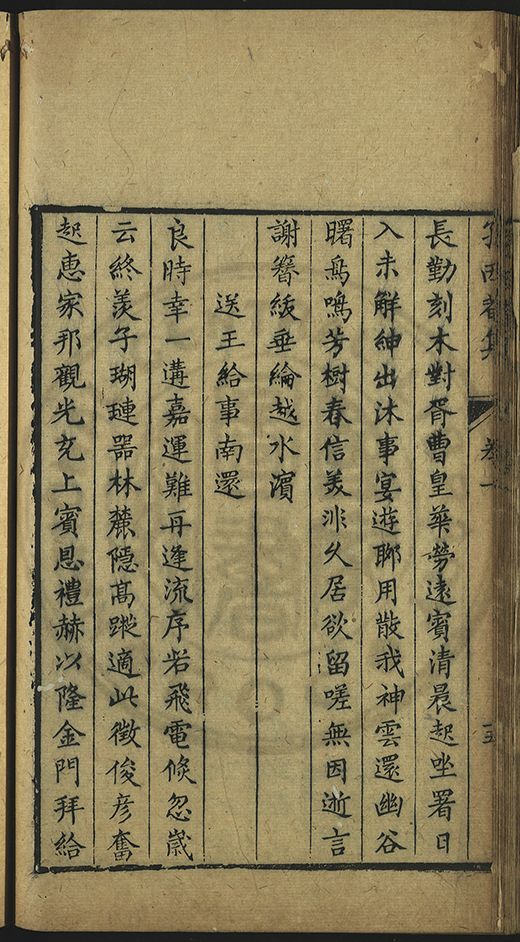 西菴集 卷一 十五
長勤刻木對胥曹皇華勞遠賓清晨起坐署日
入未解紳出沐事宴遊聊用散我神雲還幽谷
曙鳥鳴芳樹春信美非久居欲留嗟無因逝言
謝簪紱垂綸越水濱
送王給事南還
良時幸一遘嘉運難再逢流序若飛電倐忽歲
云終羡子瑚璉器林麓隱高蹤適此徵俊彦奮
起恵家邦觀光充上賓恩禮赫以隆金門拜給